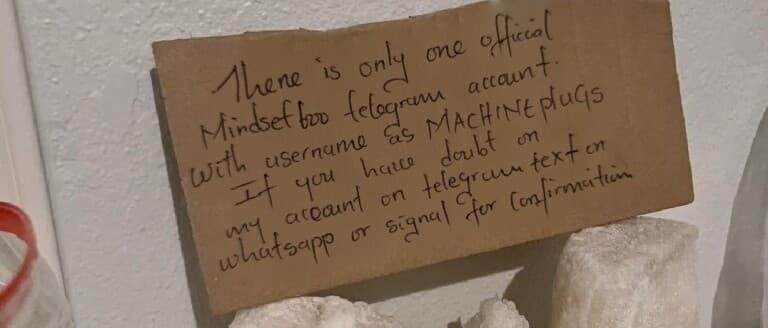 There is only one official
Mindsetboo telegram account.
with username as MACHINEplugs
If you have doubt on
my account on telegram text on
whatsapp or signal for Confirmation